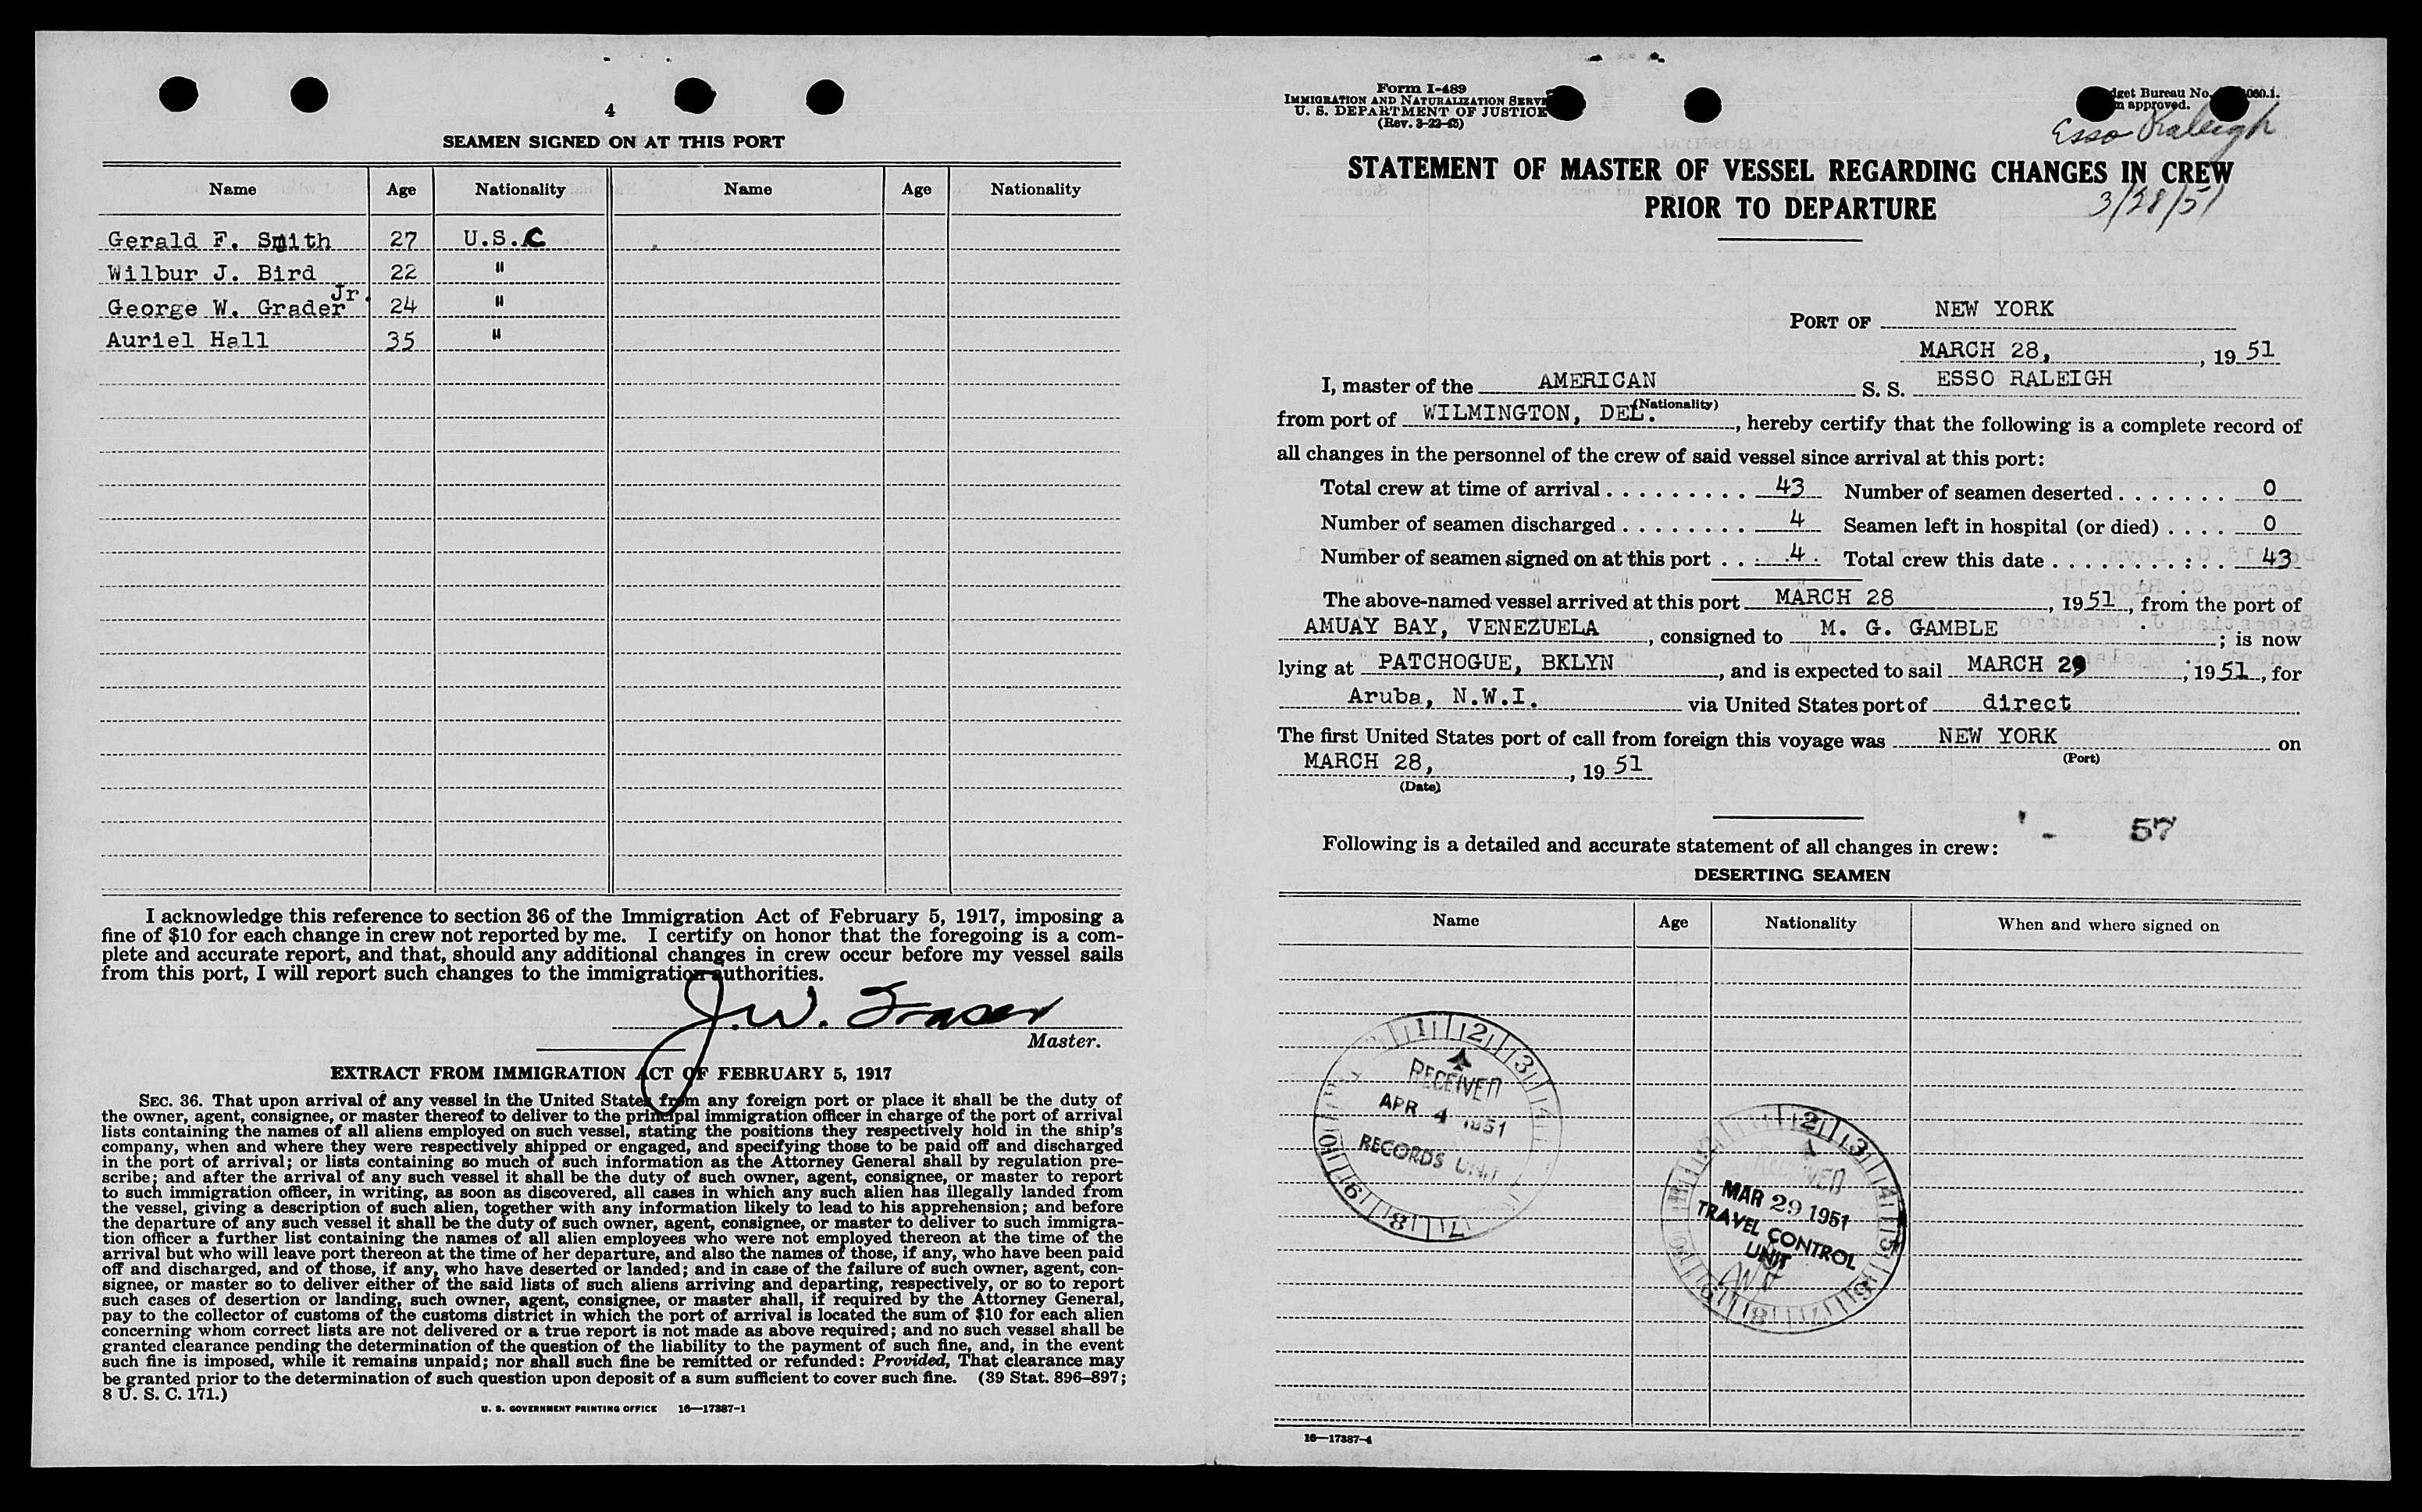 4
SEAMEN SIGNED ON AT THIS PORT
Name Age Nationality Name Age Nationality
Gerald F. Smith 27 U.S.C
Wilbur J. Bird 22 "
George W. Grader Jr. 24 "
Auriel Hall 35 "
I acknowledge this reference to section 36 of the Immigration Act of February 5, 1917, imposing a
fine of $10 for each change in crew not reported by me. I certify on honor that the foregoing is a com-
plete and accurate report, and that, should any additional changes in crew occur before my vessel sails
from this port, I will report such changes to the immigration authorities.
J.W. Fraser
Master.
EXTRACT FROM IMMIGRATION ACT OF FEBRUARY 5, 1917
SEC. 36. That upon arrival of any vessel in the United States from any foreign port or place it shall be the duty of
the owner, agent, consignee, or master thereof to deliver to the principal immigration officer in charge of the port of arrival
lists containing the names of all aliens employed on such vessel, stating the positions they respectively hold in the ship's
company, when and where they were respectively shipped or engaged, and specifying those to be paid off and discharged
in the port of arrival; or lists containing so much of such information as the Attorney General shall by regulation pre-
scribe; and after the arrival of any such vessel it shall be the duty of such owner, agent, consignee, or master to report
to such immigration officer, in writing, as soon as discovered, all cases in which any such alien has illegally landed from
the vessel, giving a description of such alien, together with any information likely to lead to his apprehension; and before
the departure of any such vessel it shall be the duty of such owner, agent, consignee, or master to deliver to such immigra-
tion officer a further list containing the names of all alien employees who were not employed thereon at the time of the
arrival but who will leave port thereon at the time of her departure, and also the names of those, if any, who have been paid
off and discharged, and of those, if any, who have deserted or landed; and in case of the failure of such owner, agent, con-
signee, or master so to deliver either of the said lists of such aliens arriving and departing, respectively, or so to report
such cases of desertion or landing, such owner, agent, consignee, or master shall, if required by the Attorney General,
pay to the collector of customs of the customs district in which the port of arrival is located the sum of $10 for each alien
concerning whom correct lists are not delivered or a true report is not made as above required; and no such vessel shall be
granted clearance pending the determination of the question of the liability to the payment of such fine, and, in the event
such fine is imposed, while it remains unpaid; nor shall such fine be remitted or refunded: Provided, That clearance may
be granted prior to the determination of such question upon deposit of a sum sufficient to cover such fine. (39 Stat. 896–897;
8 U. S. C. 171.)
U. S. GOVERNMENT PRINTING OFFICE 16—17387-1
Form I-489
IMMIGRATION AND NATURALIZATION SERVI
U. S. DEPARTMENT OF JUSTICE
(Rev. 3-22-45)
dget Bureau No. 060.1.
m approved.
Esso Raleigh
STATEMENT OF MASTER OF VESSEL REGARDING CHANGES IN CREW
PRIOR TO DEPARTURE
3/28/51
PORT OF NEW YORK
MARCH 28, , 19 51
I, master of the AMERICAN S. S. ESSO RALEIGH
(Nationality)
from port of WILMINGTON, DEL. , hereby certify that the following is a complete record of
all changes in the personnel of the crew of said vessel since arrival at this port:
Total crew at time of arrival . . . . . . . . . 43 Number of seamen deserted . . . . . . . 0
Number of seamen discharged . . . . . . . . 4 Seamen left in hospital (or died) . . . . 0
Number of seamen signed on at this port . . 4 . Total crew this date . . . . . . . . : . . 43
The above-named vessel arrived at this port MARCH 28 , 19 51 , from the port of
AMUAY BAY, VENEZUELA , consigned to M. G. GAMBLE ; is now
lying at PATCHOGUE, BKLYN , and is expected to sail MARCH 29 , 19 51 , for
Aruba, N.W.I. via United States port of direct
The first United States port of call from foreign this voyage was NEW YORK on
(Port)
MARCH 28, , 19 51
(Date)
57
Following is a detailed and accurate statement of all changes in crew:
DESERTING SEAMEN
Name Age Nationality When and where signed on
RECEIVED
APR 4 1951
RECORDS UNIT
RECEIVED
MAR 29 1951
TRAVEL CONTROL
UNIT
16—17387-4